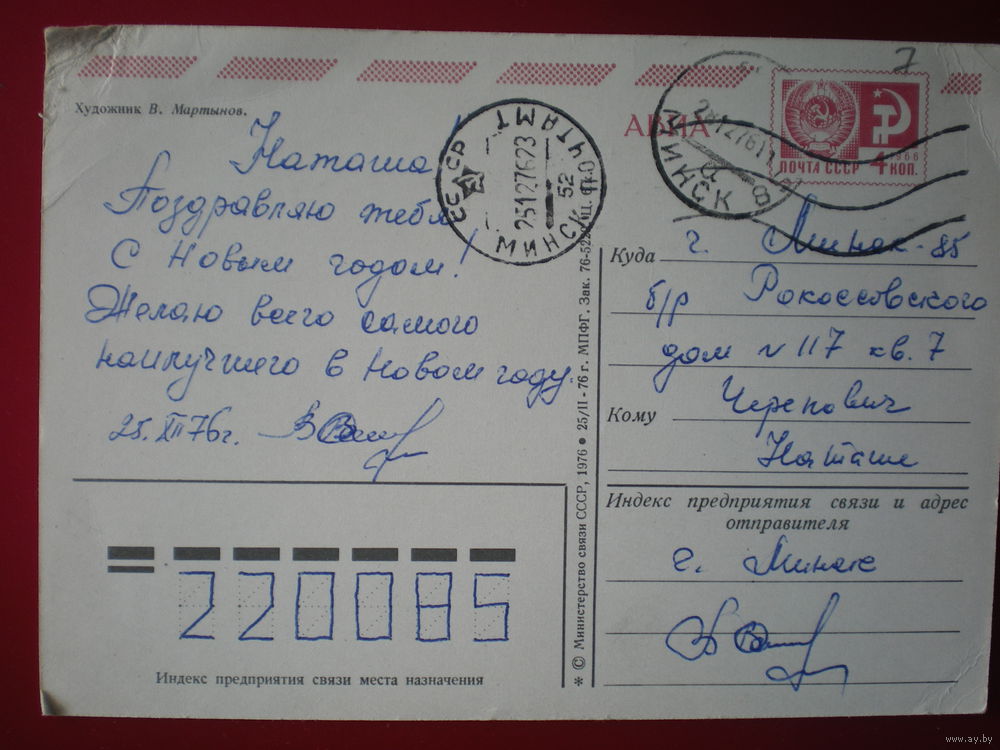 7
Художник В. Мартынов.
АВИА
1966
ПОЧТА СССР 4 КОП.
СССР
МИНСК ПОЧТАМТ
25127623
52
МИНСК
8
Наташа!
Поздравляю тебя
С Новым годом!
Желаю всего самого
наилучшего в Новом году.
25.XII 76г.
Куда г. Минск-85
б/р Рокоссовского
дом N 117 кв. 7
Кому Черепович
Наташе
Индекс предприятия связи и адрес
отправителя
г. Минск
220085
Индекс предприятия связи места назначения
* © Министерство связи СССР, 1976 ● 25/II - 76 г. МПФГ. Зак. 76-522
www.ay.by